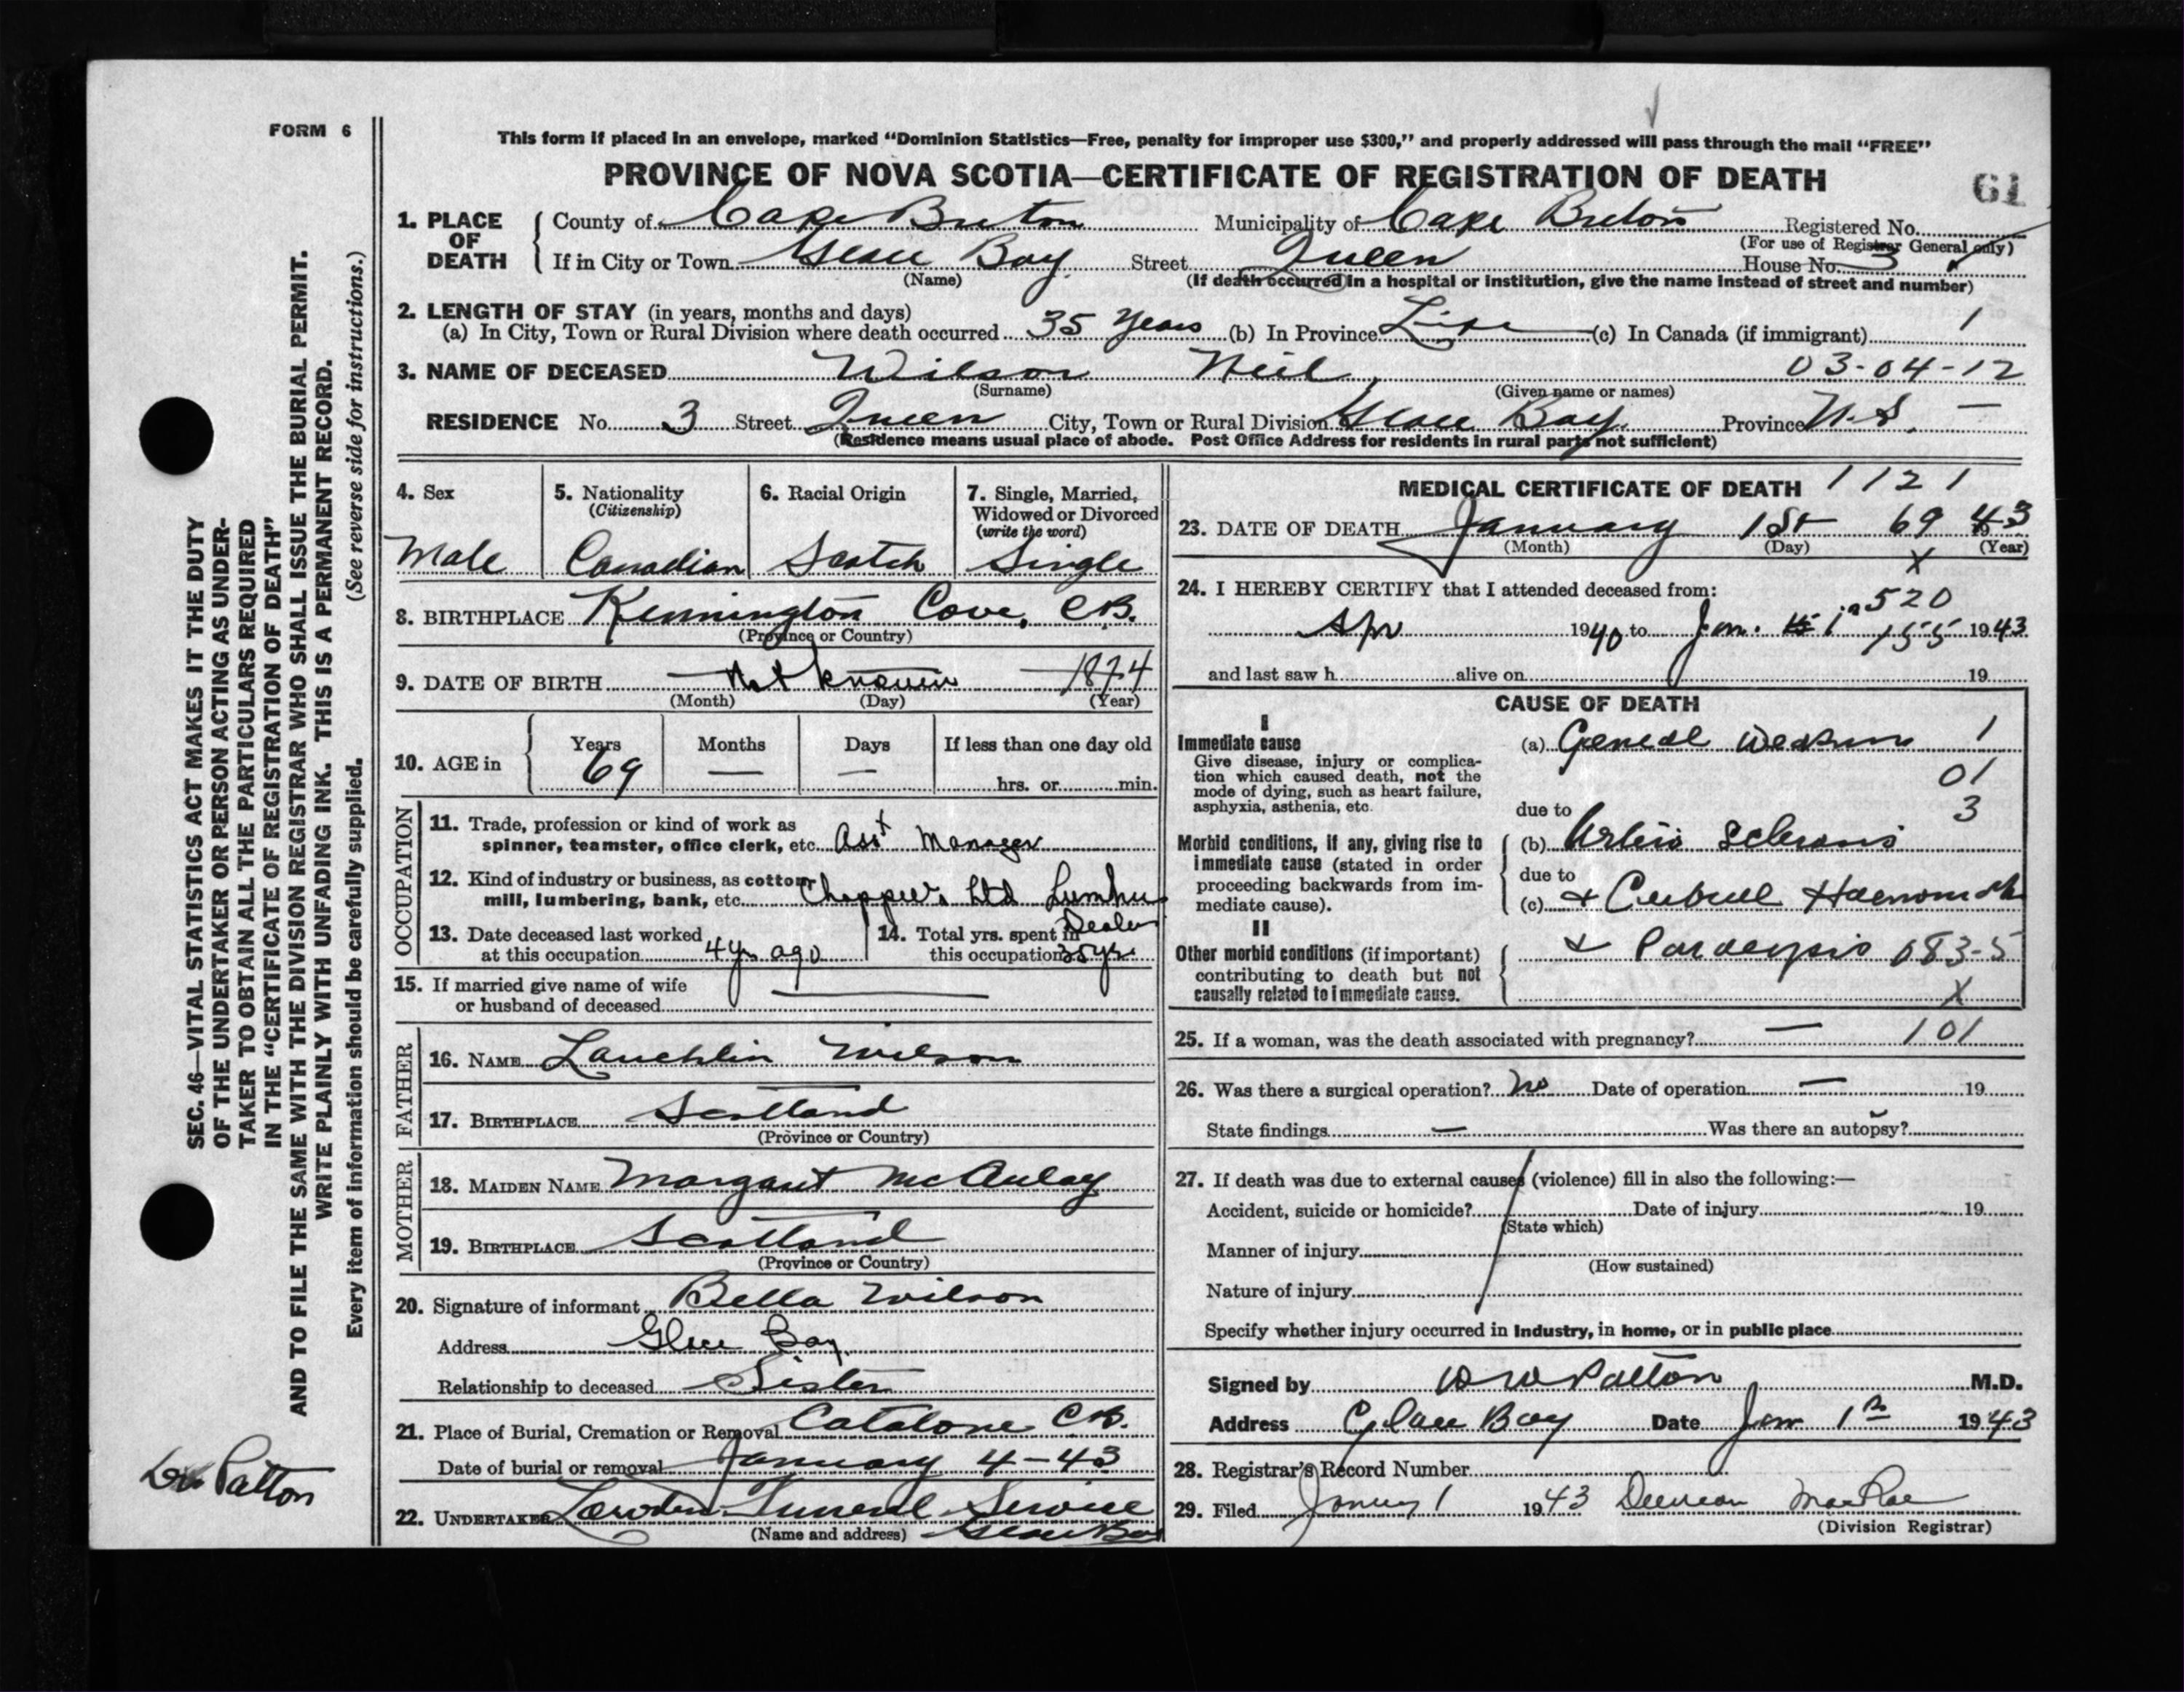 FORM 6
This form if placed in an envelope, marked “Dominion Statistics—Free, penalty for improper use $300,” and properly addressed will pass through the mail “FREE”
PROVINCE OF NOVA SCOTIA—CERTIFICATE OF REGISTRATION OF DEATH
61
1. PLACE OF DEATH
County of Cape Breton Municipality of Cape Breton Registered No.
(For use of Registrar General only)
If in City or Town Glace Bay Street Queen House No. 3
(Name) (If death occurred in a hospital or institution, give the name instead of street and number)
2. LENGTH OF STAY (in years, months and days)
(a) In City, Town or Rural Division where death occurred 35 Years (b) In Province Life (c) In Canada (if immigrant) 1
3. NAME OF DECEASED Wilson Neil, 03-04-12
(Surname) (Given name or names)
RESIDENCE No. 3 Street Queen City, Town or Rural Division Glace Bay. Province N.S. —
(Residence means usual place of abode. Post Office Address for residents in rural parts not sufficient)
4. Sex
Male
5. Nationality
(Citizenship)
Canadian
6. Racial Origin
Scotch
7. Single, Married,
Widowed or Divorced
(write the word)
Single
8. BIRTHPLACE Kennington Cove, C.B.
(Province or Country)
9. DATE OF BIRTH Not known 1874
(Month) (Day) (Year)
10. AGE in
Years Months Days If less than one day old
69 — — hrs. or min.
OCCUPATION
11. Trade, profession or kind of work as
spinner, teamster, office clerk, etc. Asst Manager
12. Kind of industry or business, as cotton
mill, lumbering, bank, etc. Chappell's Ltd Lumber
Dealer
13. Date deceased last worked
at this occupation 4 yrs ago
14. Total yrs. spent in
this occupation 35 yrs.
15. If married give name of wife
or husband of deceased
FATHER
16. NAME Lauchlin Wilson
17. BIRTHPLACE Scotland
(Province or Country)
MOTHER
18. MAIDEN NAME Margaret McAulay
19. BIRTHPLACE Scotland
(Province or Country)
20. Signature of informant Bella Wilson
Address Glace Bay.
Relationship to deceased Sister
21. Place of Burial, Cremation or Removal Catalone C.B.
Date of burial or removal January 4-43
22. UNDERTAKER Funeral Service
(Name and address) Glace Bay
MEDICAL CERTIFICATE OF DEATH 1121
23. DATE OF DEATH January 1st 69 1943
(Month) (Day) (Year)
X
24. I HEREBY CERTIFY that I attended deceased from:
520
Apr 1940 to Jan. 1 155 1943
and last saw h alive on 19
CAUSE OF DEATH
I
Immediate cause
Give disease, injury or complication which caused death, not the
mode of dying, such as heart failure,
asphyxia, asthenia, etc.
(a) General Weakness 1
01
due to 3
Morbid conditions, if any, giving rise to
immediate cause (stated in order
proceeding backwards from immediate cause).
(b) Arterio Sclerosis
due to
(c) & Cerebral Haemorrhage
II
Other morbid conditions (if important)
contributing to death but not
causally related to immediate cause.
& Paralysis 083-5
X
25. If a woman, was the death associated with pregnancy? — 101
26. Was there a surgical operation? No Date of operation — 19
State findings — Was there an autopsy?
27. If death was due to external causes (violence) fill in also the following:—
Accident, suicide or homicide? Date of injury 19
(State which)
Manner of injury
(How sustained)
Nature of injury
Specify whether injury occurred in industry, in home, or in public place
Signed by D W Patton M.D.
Address Glace Bay Date Jan 1st 1943
28. Registrar's Record Number
29. Filed January 1 1943 Duncan MacRae
(Division Registrar)
SEC. 46—VITAL STATISTICS ACT MAKES IT THE DUTY
OF THE UNDERTAKER OR PERSON ACTING AS UNDER-
TAKER TO OBTAIN ALL THE PARTICULARS REQUIRED
IN THE “CERTIFICATE OF REGISTRATION OF DEATH”
AND TO FILE THE SAME WITH THE DIVISION REGISTRAR WHO SHALL ISSUE THE BURIAL PERMIT.
WRITE PLAINLY WITH UNFADING INK. THIS IS A PERMANENT RECORD.
Every item of information should be carefully supplied. (See reverse side for instructions.)
Dr. Patton